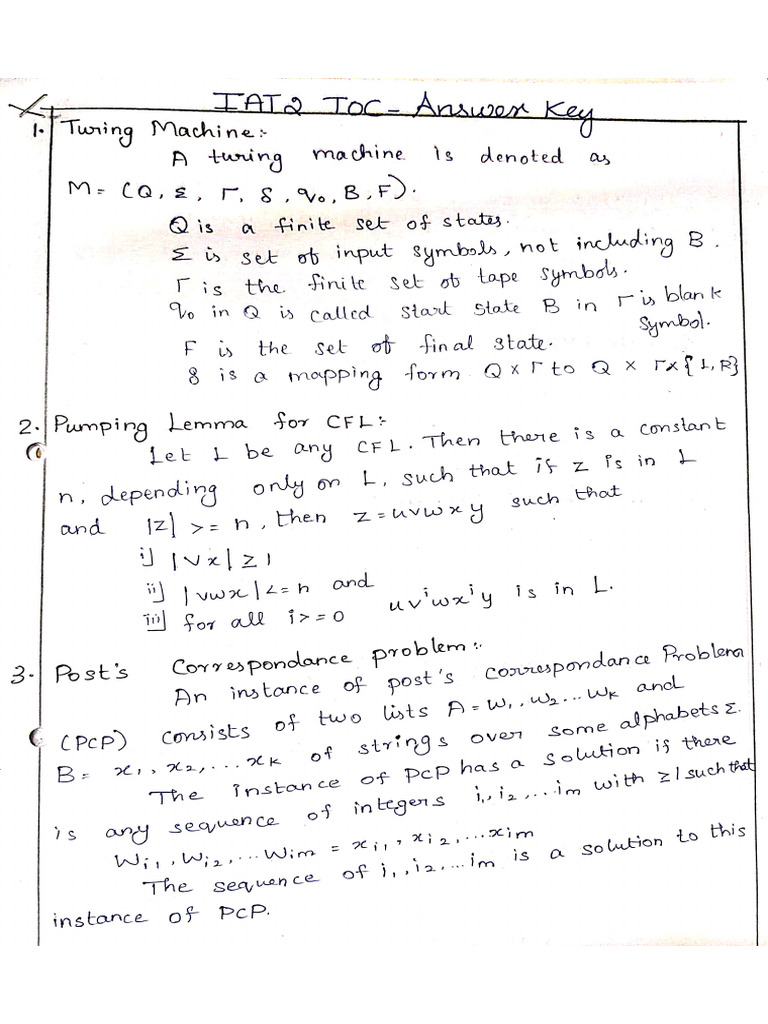 IAT2 TOC - Answer Key
1. Turing Machine:-
A turing machine is denoted as
M = (Q, Σ, Γ, δ, q₀, B, F).
Q is a finite set of states.
Σ is set of input symbols, not including B.
Γ is the finite set of tape symbols.
q₀ in Q is called start state B in Γ is blank
symbol.
F is the set of final state.
δ is a mapping form Q × Γ to Q × Γ × {L, R}
2. Pumping Lemma for CFL:-
Let L be any CFL. Then there is a constant
n, depending only on L, such that if z is in L
and |z| >= n, then z = uvwxy such that
i) |vx| ≥ 1
ii) |vwx| <= n and
iii) for all i >= 0 uvⁱwxⁱy is in L.
3. Post's Correspondance problem:-
An instance of post's correspondance Problem
(PCP) consists of two lists A = w₁, w₂ ... wₖ and
B = x₁, x₂, ... xₖ of strings over some alphabets Σ.
The instance of PCP has a solution if there
is any sequence of integers i₁, i₂, ... im with ≥1 such that
wi₁, wi₂, ... wim = xi₁, xi₂, ... xim
The sequence of i₁, i₂, ... im is a solution to this
instance of PCP.